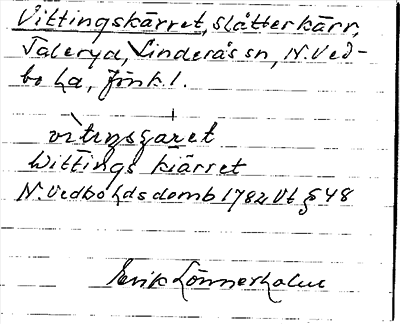 Vittingskärret, slåtterkärr,
Taleryd, Linderås sn, N. Ved-
bo hd, Jönk. l.
vitıŋsçäret
Wittings kiärret
N. Vedbo hds domb 1782 Vt § 48
Erik Lönnerholm